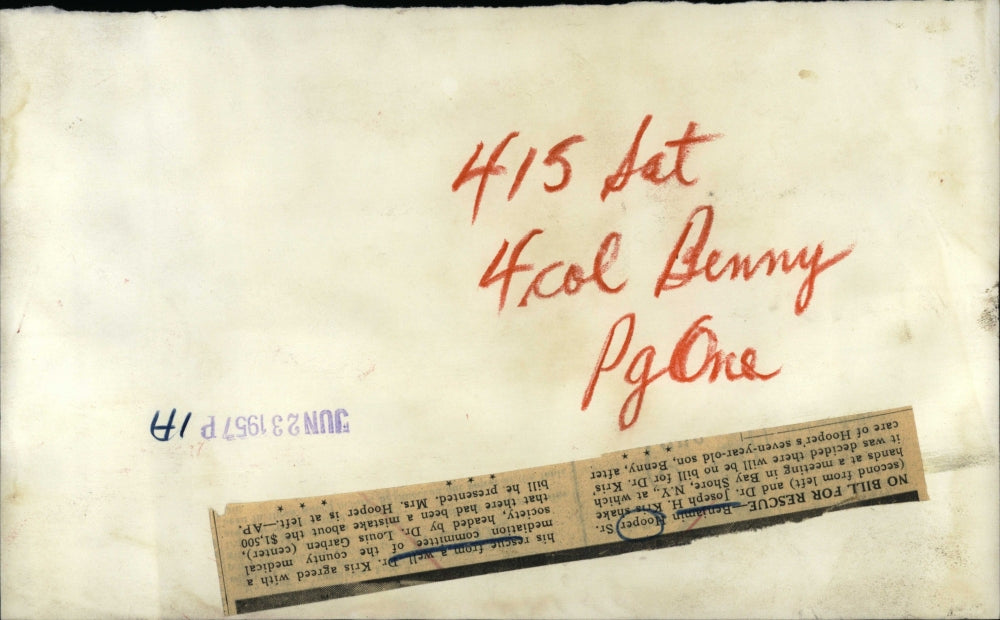 415 Sat
4 col Benny
Pg One
JUN 23 1957 P 1A
NO BILL FOR RESCUE—Benjamin Hooper Sr.
(second from left) and Dr. Joseph H. Kris shake
hands at a meeting in Bay Shore, N.Y., at which
it was decided there will be no bill for Dr. Kris'
care of Hooper's seven-year-old son, Benny, after
his rescue from a well. Dr. Kris agreed with a
mediation committee of the county medical
society, headed by Dr. Louis Garben (center),
that there had been a mistake about the $1,500
bill he presented. Mrs. Hooper is at left.—AP.